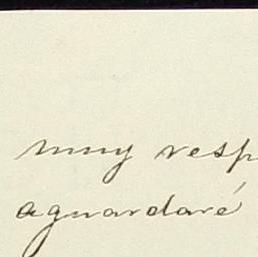 muy resp
aguardaré